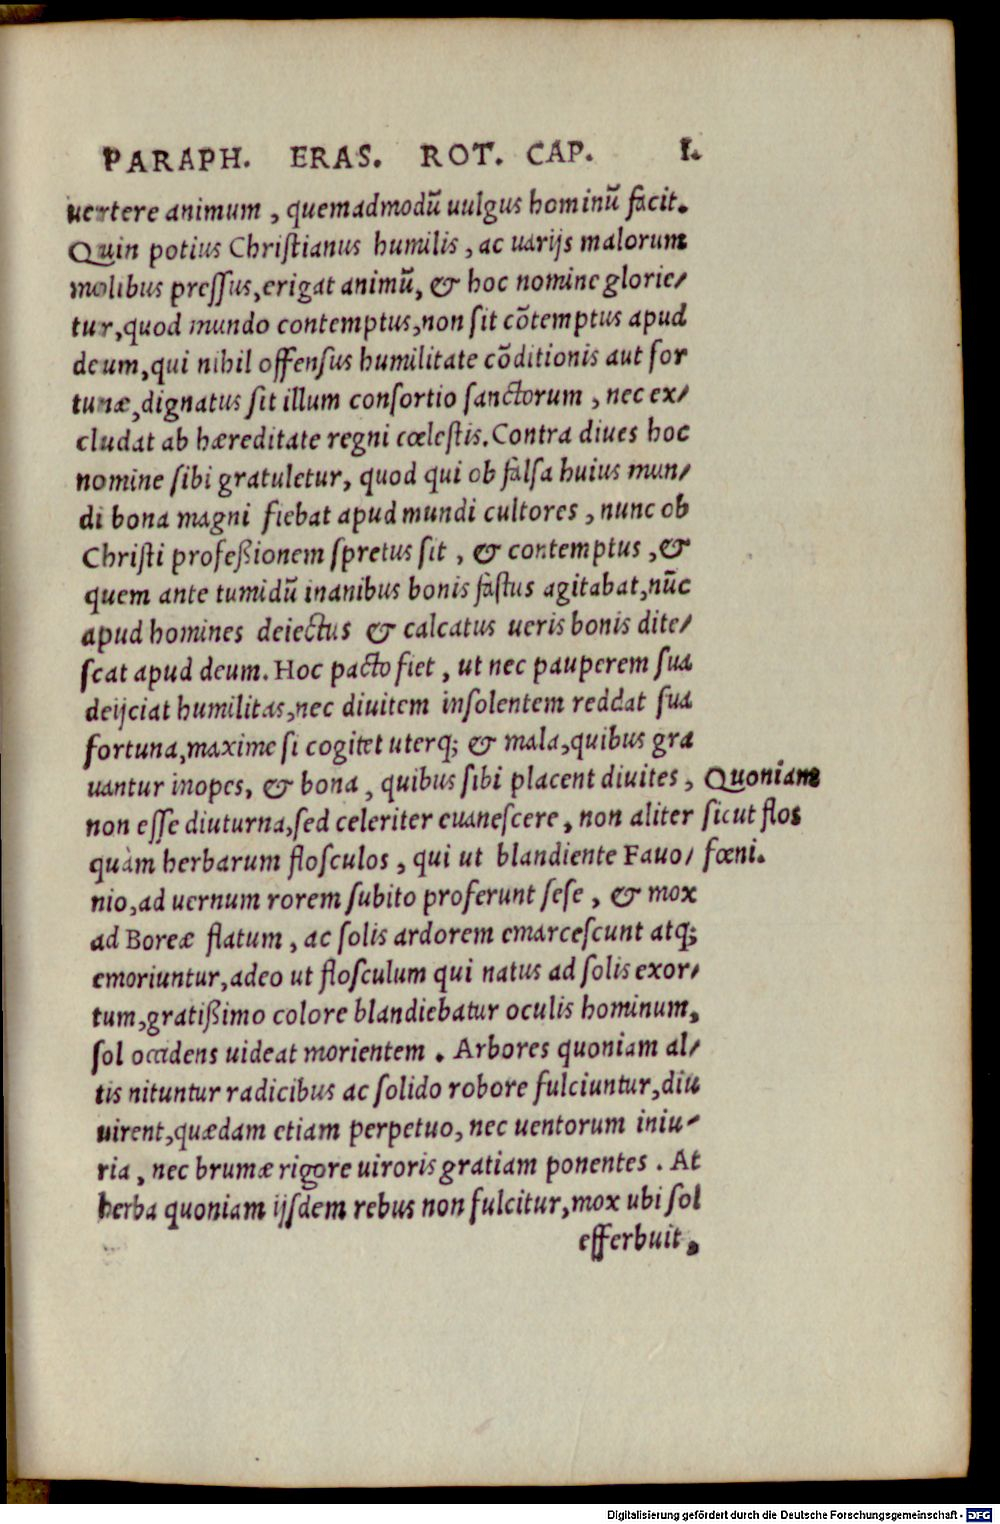 PARAPH. ERAS. ROT. CAP. I.
uertere animum, quemadmodũ uulgus hominũ facit.
Quin potius Christianus humilis, ac uarijs malorum
molibus pressus, erigat animũ, & hoc nomine glorie/
tur, quod mundo contemptus, non sit cõtemptus apud
deum, qui nihil offensus humilitate cõditionis aut for
tunæ, dignatus sit illum consortio sanctorum, nec ex/
cludat ab hæreditate regni cœlestis. Contra diues hoc
nomine sibi gratuletur, quod qui ob falsa huius mun/
di bona magni fiebat apud mundi cultores, nunc ob
Christi profeßionem spretus sit, & contemptus, &
quem ante tumidũ inanibus bonis fastus agitabat, nũc
apud homines deiectus & calcatus ueris bonis dite/
scat apud deum. Hoc pacto fiet, ut nec pauperem sua
deijciat humilitas, nec diuitem insolentem reddat sua
fortuna, maxime si cogitet uterq; & mala, quibus gra
uantur inopes, & bona, quibus sibi placent diuites,
non esse diuturna, sed celeriter euanescere, non aliter
quàm herbarum flosculos, qui ut blandiente Fauo/
nio, ad uernum rorem subito proferunt sese, & mox
ad Boreæ flatum, ac solis ardorem emarcescunt atq;
emoriuntur, adeo ut flosculum qui natus ad solis exor/
tum, gratißimo colore blandiebatur oculis hominum,
sol occidens uideat morientem. Arbores quoniam al/
tis nituntur radicibus ac solido robore fulciuntur, diu
uirent, quædam etiam perpetuo, nec uentorum iniu/
ria, nec brumæ rigore uiroris gratiam ponentes. At
herba quoniam ijsdem rebus non fulcitur, mox ubi sol
efferbuit,
Quoniam
sicut flos
fœni.
Digitalisierung gefördert durch die Deutsche Forschungsgemeinschaft - DFG